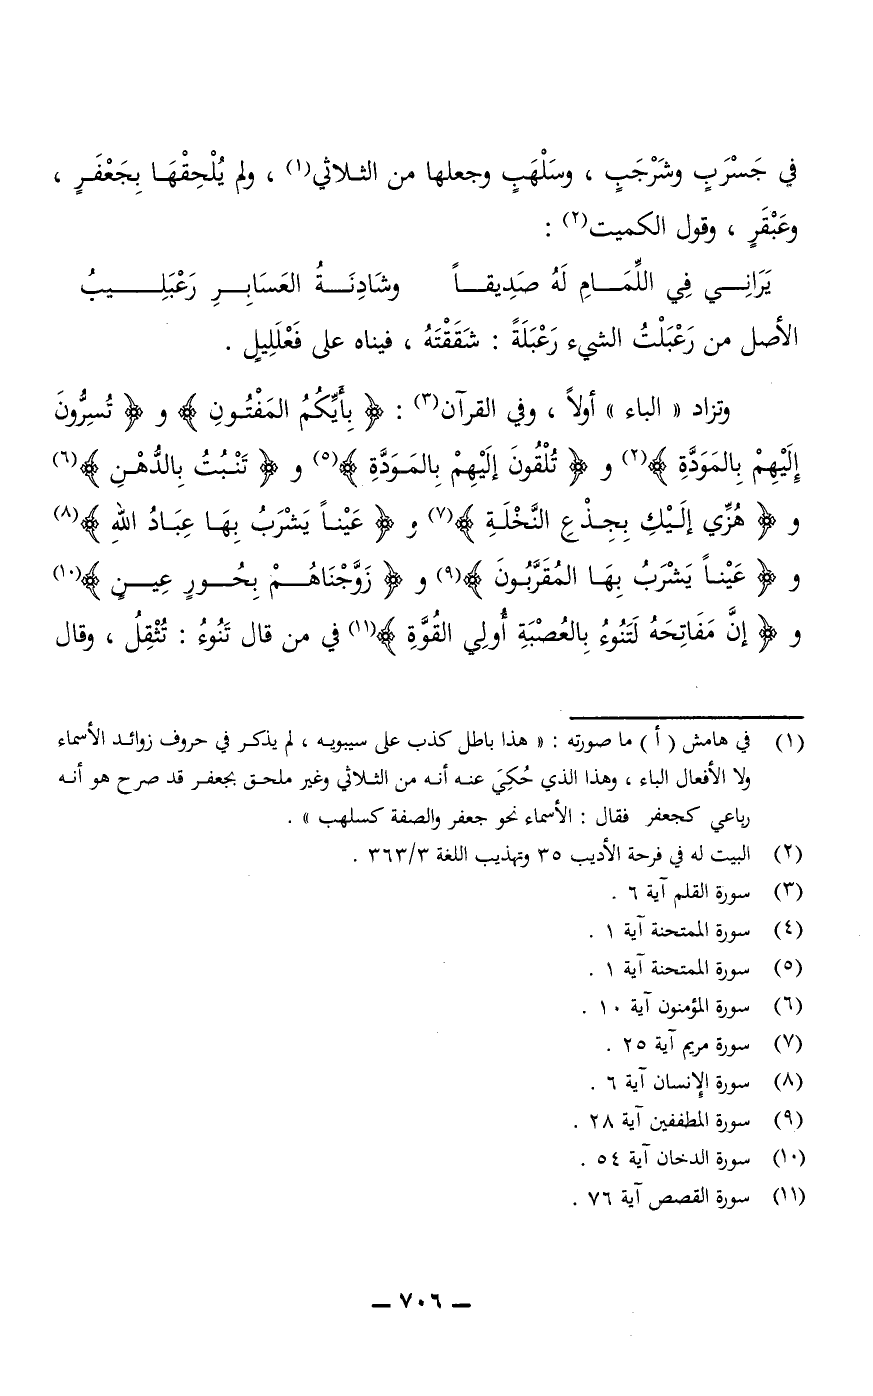 في جَسْرَبٍ وشَرْجَبٍ ، وسَلْهَبٍ وجعلها من الثلاثي(١) ، ولم يُلْحِقْهَا بِجَعْفَرٍ ،
وعَبْقَرٍ ، وقول الكميت(٢) :
يَرَانِي فِي اللِّمَامِ لَهُ صَدِيقاً وشَادِنَةُ العَسَابِرِ رَعْبَلِيبُ
الأصل من رَعْبَلْتُ الشيء رَعْبَلَةً : شَقَقْتَهُ ، فبناه على فَعْلَلِيلٍ .
وتزاد « الباء » أولاً ، وفي القرآن(٣) : ﴿ بِأَيِّكُمُ المَفْتُونِ ﴾ و ﴿ تُسِرُّونَ
إِلَيْهِمْ بِالمَوَدَّةِ ﴾(٢) و ﴿ تُلْقُونَ إِلَيْهِمْ بِالمَوَدَّةِ ﴾(٥) و ﴿ تَنْبُتُ بِالدُّهْنِ ﴾(٦)
و ﴿ هُزِّي إِلَيْكِ بِجِذْعِ النَّخْلَةِ ﴾(٧) و ﴿ عَيْناً يَشْرَبُ بِهَا عِبَادُ اللهِ ﴾(٨)
و ﴿ عَيْناً يَشْرَبُ بِهَا المُقَرَّبُونَ ﴾(٩) و ﴿ زَوَّجْنَاهُمْ بِحُورٍ عِينٍ ﴾(١٠)
و ﴿ إِنَّ مَفَاتِحَهُ لَتَنُوءُ بِالعُصْبَةِ أُولِي القُوَّةِ ﴾(١١) في من قال تَنُوءُ : تُثْقِلُ ، وقال
(١) في هامش ( أ ) ما صورته : « هذا باطل كذب على سيبويه ، لم يذكر في حروف زوائد الأسماء
ولا الأفعال الباء ، وهذا الذي حُكِيَ عنه أنه من الثلاثي وغير ملحق بجعفر قد صرح هو أنه
رباعي كجعفر فقال : الأسماء نحو جعفر والصفة كسلهب » .
(٢) البيت له في فرحة الأديب ٣٥ وتهذيب اللغة ٣٦٣/٣ .
(٣) سورة القلم آية ٦ .
(٤) سورة الممتحنة آية ١ .
(٥) سورة الممتحنة آية ١ .
(٦) سورة المؤمنون آية ١٠ .
(٧) سورة مريم آية ٢٥ .
(٨) سورة الإنسان آية ٦ .
(٩) سورة المطففين آية ٢٨ .
(١٠) سورة الدخان آية ٥٤ .
(١١) سورة القصص آية ٧٦ .
— ٧٠٦ —